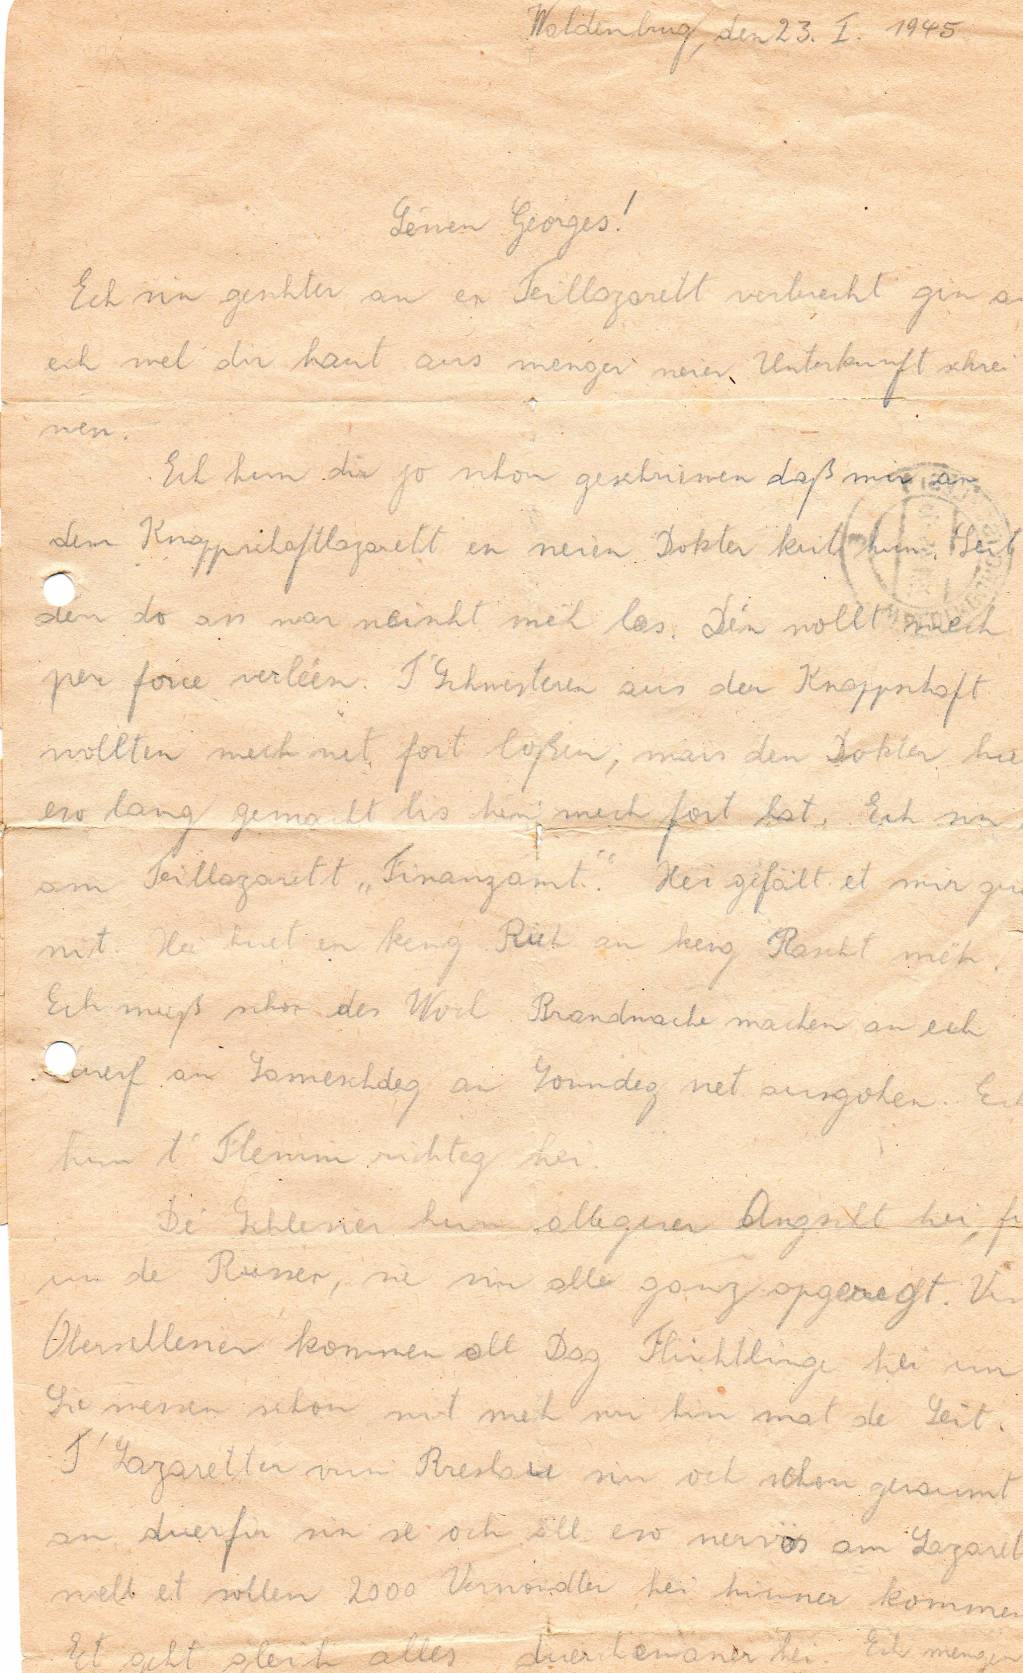 Waldenburg, den 23. I. 1945
Léiwen Georges!
Ech sin geschter an en Teillazarett verluecht gin an
ech wel dir haut aus menger neier Unterkunft schrei
wen.
Ech hun dir jo schon geschriwwen daß mir an
dem Knappschaftlazarett en neien Dokter krit hun. Seit
den do as war neischt méh las. Dén wollt mech
per force verléen. T'Schwesteren aus der Knappschaft
wollten mech net fort loßen, mais den Dokter hue
eso lang gemacht bis hien mech fort hat. Ech sin
am Teillazarett „Finanzamt". Hei gefällt et mir gu
nit. Hei huet en keng Rüh an keng Rascht méh.
Ech muß schon des Woch Brandwache machen an ech
duerf an Sameschdeg an Sonndeg net ausgohen. Ech
hun t'Flemm richteg hei.
Dé Schlesier hun allegerer Angscht hei, fir
un de Russen, sie sin alle ganz opgeregt. Vun
Oberschlesien kommen all Dag Flüchtlinge hei un
Sie wessen schon nit méh wu hin mat de Leit.
T'Lazaretter vun Breslau sin och schon geraumt
an duerfir sin se och all eso nervös am Lazaret
well et sollen 2000 Verwondter hei hinner kommen
Et geht gleich alles duerteneaner hei. Ech mengen